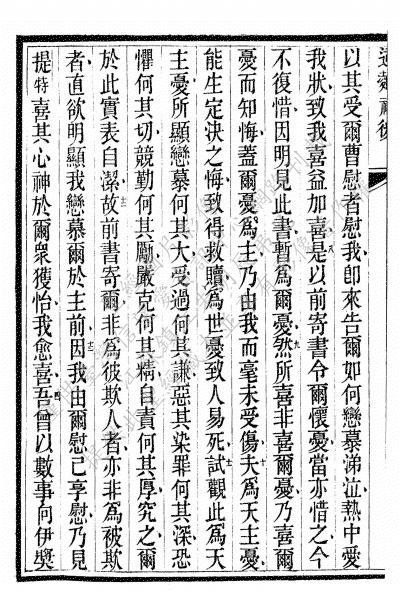 以其受爾曹慰者慰我卽來告爾如何戀慕涕泣熱中愛
我狀致我喜益加喜是以前寄書令爾懷憂當亦惜之今
不復惜因明見此書暫爲爾憂然所喜非喜爾憂乃喜爾
憂而知悔蓋爾憂爲主乃由我而毫未受傷夫爲天主憂
能生定決之悔致得救贖爲世憂致人易死試觀此爲天
主憂所顯戀慕何其大受過何其謙惡其染罪何其深恐
懼何其切競勤何其勵嚴克何其精自責何其厚究之爾
於此實表自潔故前書寄爾非爲彼欺人者亦非爲被欺
者直欲明顯我戀慕爾於主前因我由爾慰己享慰乃見
提特喜其心神於爾眾獲怡我愈喜吾曾以數事向伊獎